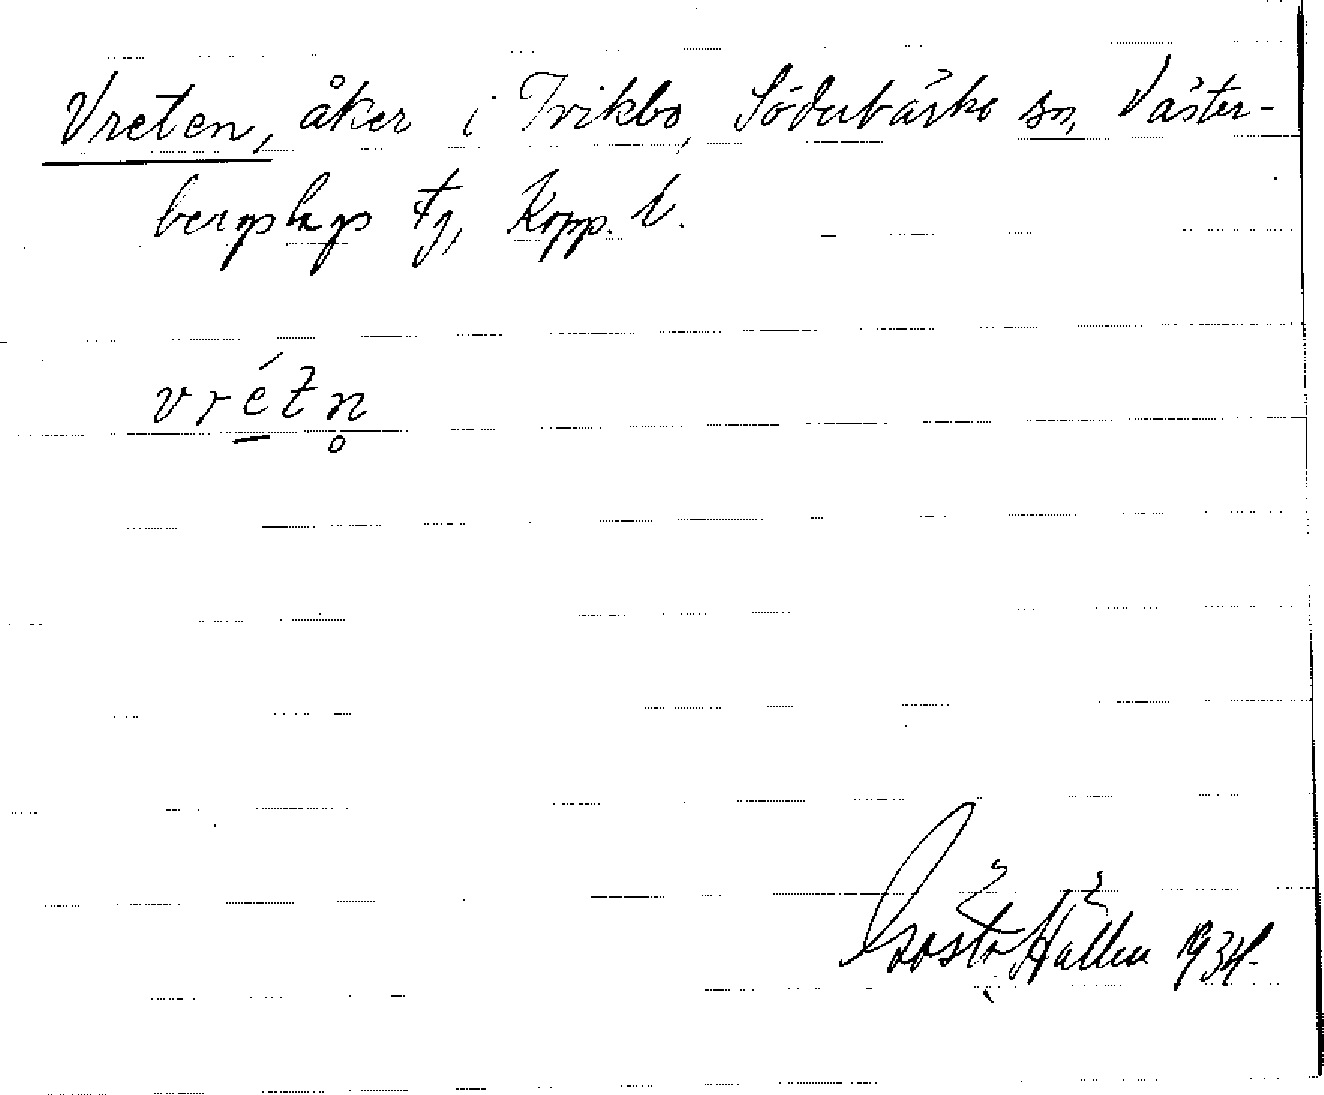 Vreten, åker i Tvikbo, Söderbärke sn, Väster-
bergslags tg, Kopp. l.
vrétn̥
Gösta Hällen 1934